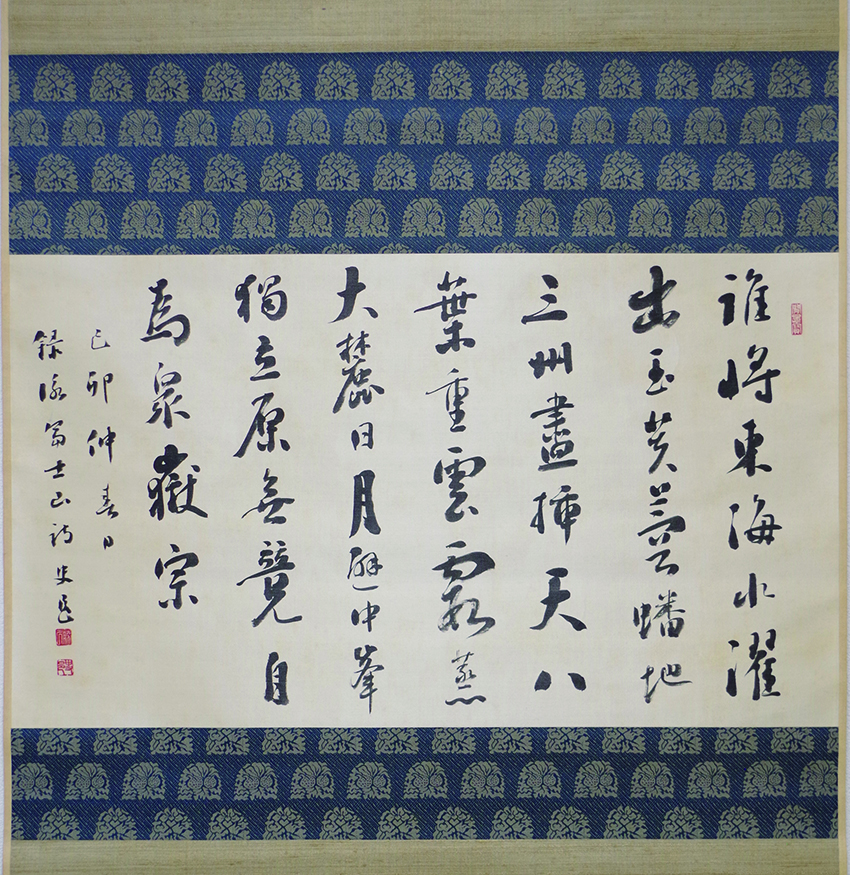 誰將東海水濯
出玉芙蓉蟠地
三州盡插天八
葉重雲霞蒸
大麓日月避中峯
獨立原無競自
為衆嶽宗
己卯仲春日
録詠富士山詩